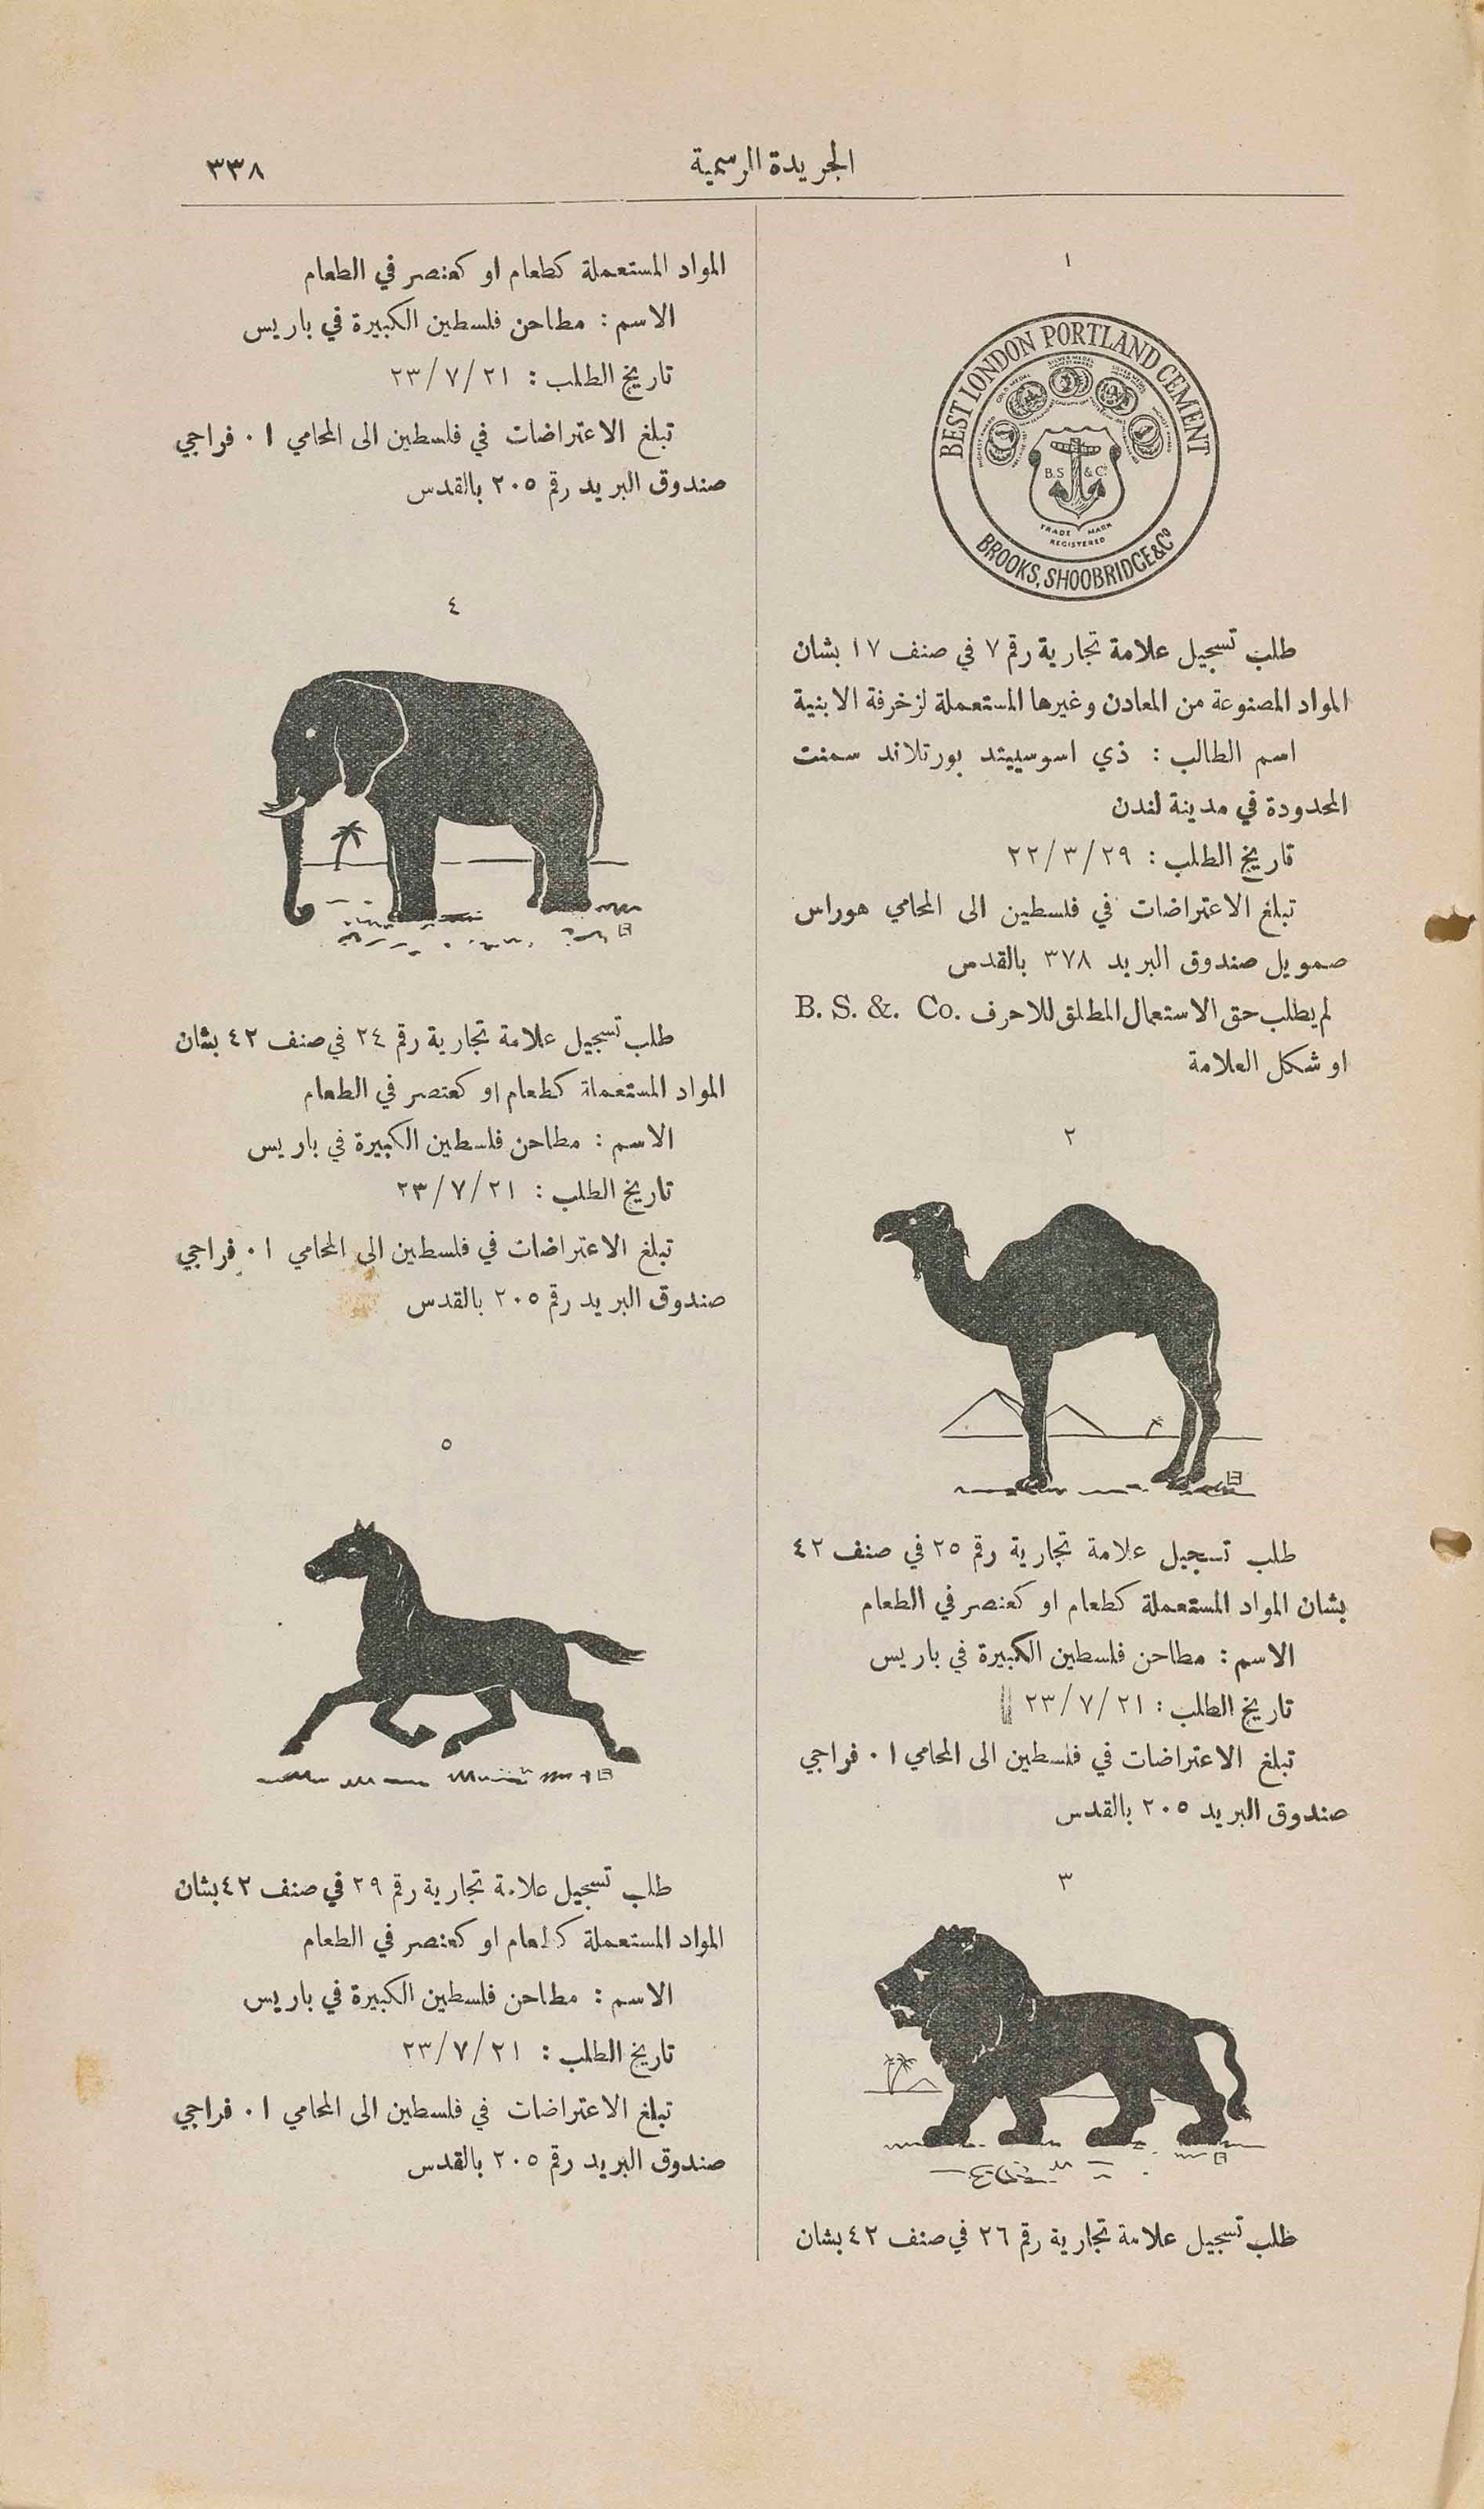 الجريدة الرسمية
٣٣٨
١
BEST LONDON PORTLAND CEMENT
B.S & Co
TRADE MARK
REGISTERED
BROOKS, SHOOBRIDGE & Co
طلب تسجيل علامة تجارية رقم ٧ في صنف ١٧ بشان
المواد المصنوعة من المعادن وغيرها المستعملة لزخرفة الابنية
اسم الطالب : ذي اسوسييتد بورتلاند سمنت
المحدودة في مدينة لندن
تاريخ الطلب : ٢٢/٣/٢٩
تبلغ الاعتراضات في فلسطين الى المحامي هوراس
صمويل صندوق البريد ٣٧٨ بالقدس
لم يطلب حق الاستعمال المطلق للاحرف B. S. &. Co.
او شكل العلامة
٢
طلب تسجيل علامة تجارية رقم ٢٥ في صنف ٤٢
بشان المواد المستعملة كطعام او كعنصر في الطعام
الاسم : مطاحن فلسطين الكبيرة في باريس
تاريخ الطلب : ٢٣/٧/٢١
تبلغ الاعتراضات في فلسطين الى المحامي ا . فراجي
صندوق البريد ٢٠٥ بالقدس
٣
طلب تسجيل علامة تجارية رقم ٢٦ في صنف ٤٢ بشان
المواد المستعملة كطعام او كعنصر في الطعام
الاسم : مطاحن فلسطين الكبيرة في باريس
تاريخ الطلب : ٢٣/٧/٢١
تبلغ الاعتراضات في فلسطين الى المحامي ا . فراجي
صندوق البريد رقم ٢٠٥ بالقدس
٤
طلب تسجيل علامة تجارية رقم ٢٤ في صنف ٤٢ بشان
المواد المستعملة كطعام او كعنصر في الطعام
الاسم : مطاحن فلسطين الكبيرة في باريس
تاريخ الطلب : ٢٣/٧/٢١
تبلغ الاعتراضات في فلسطين الى المحامي ا . فراجي
صندوق البريد رقم ٢٠٥ بالقدس
٥
طلب تسجيل علامة تجارية رقم ٢٩ في صنف ٤٢ بشان
المواد المستعملة كطعام او كعنصر في الطعام
الاسم : مطاحن فلسطين الكبيرة في باريس
تاريخ الطلب : ٢٣/٧/٢١
تبلغ الاعتراضات في فلسطين الى المحامي ا . فراجي
صندوق البريد رقم ٢٠٥ بالقدس